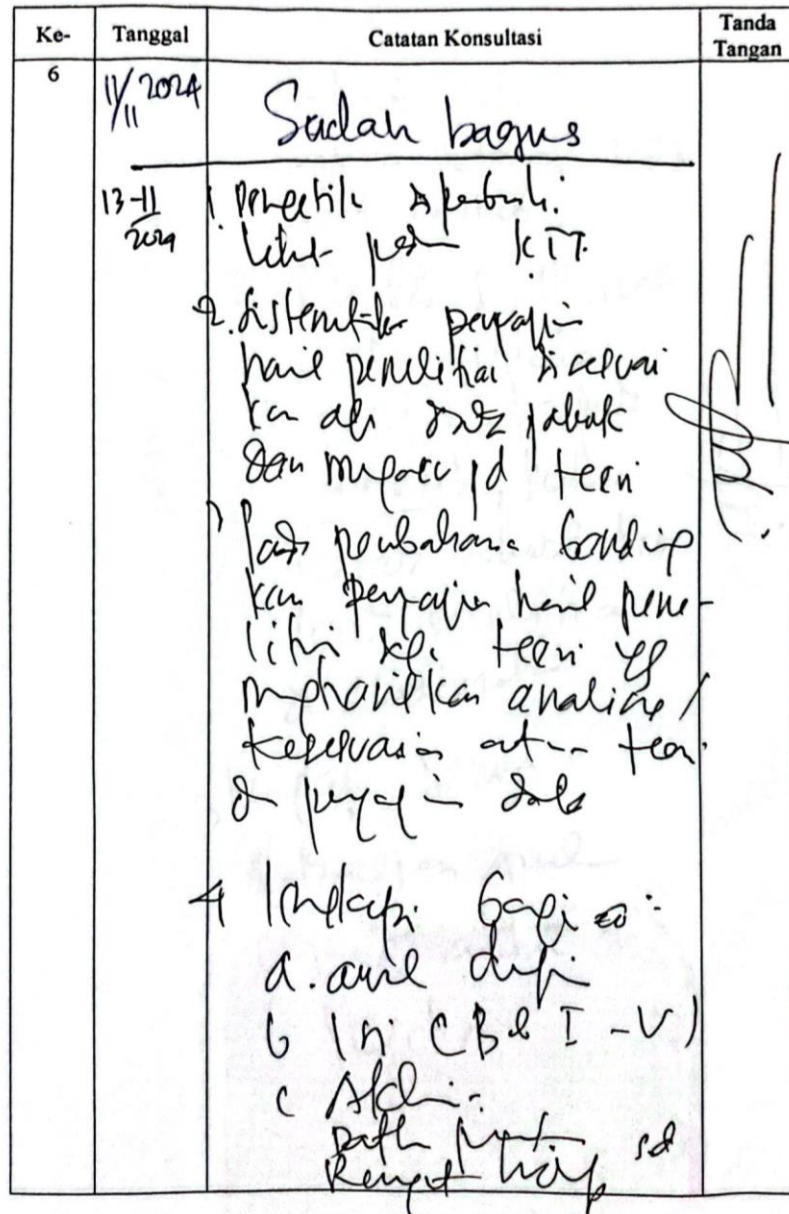 Ke- Tanggal Catatan Konsultasi Tanda Tangan
6 11/11 2024 Sudah bagus
13-11 2024 1. Pengetik diperbaiki
lihat pedm KTI.
2. Sistematika penyajian
hasil penelitian disesuai
kan dg data
dan mgacu pd teori
3. Pada pembahasan banding
kan penyajian hasil pene-
litian teori yg
mghasilkan analisa /
kesesuaian antara teori
penyajian data
4 Lengkapi bagian:
a. awal
b Isi (Bab I - V)
c Akhir:
sd
Riwayat hidup